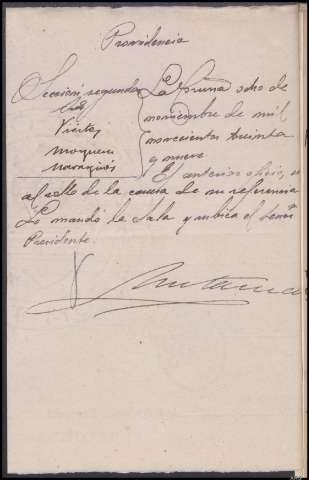 Providencia
Sección segunda
Vieites
Mosquera
La Coruña ocho de
noviembre de mil
novecientos treinta
y nueve
El anterior oficio, a
al rollo de la causa de su referencia
Lo mandó la Sala y rubrica el Señor
Presidente.